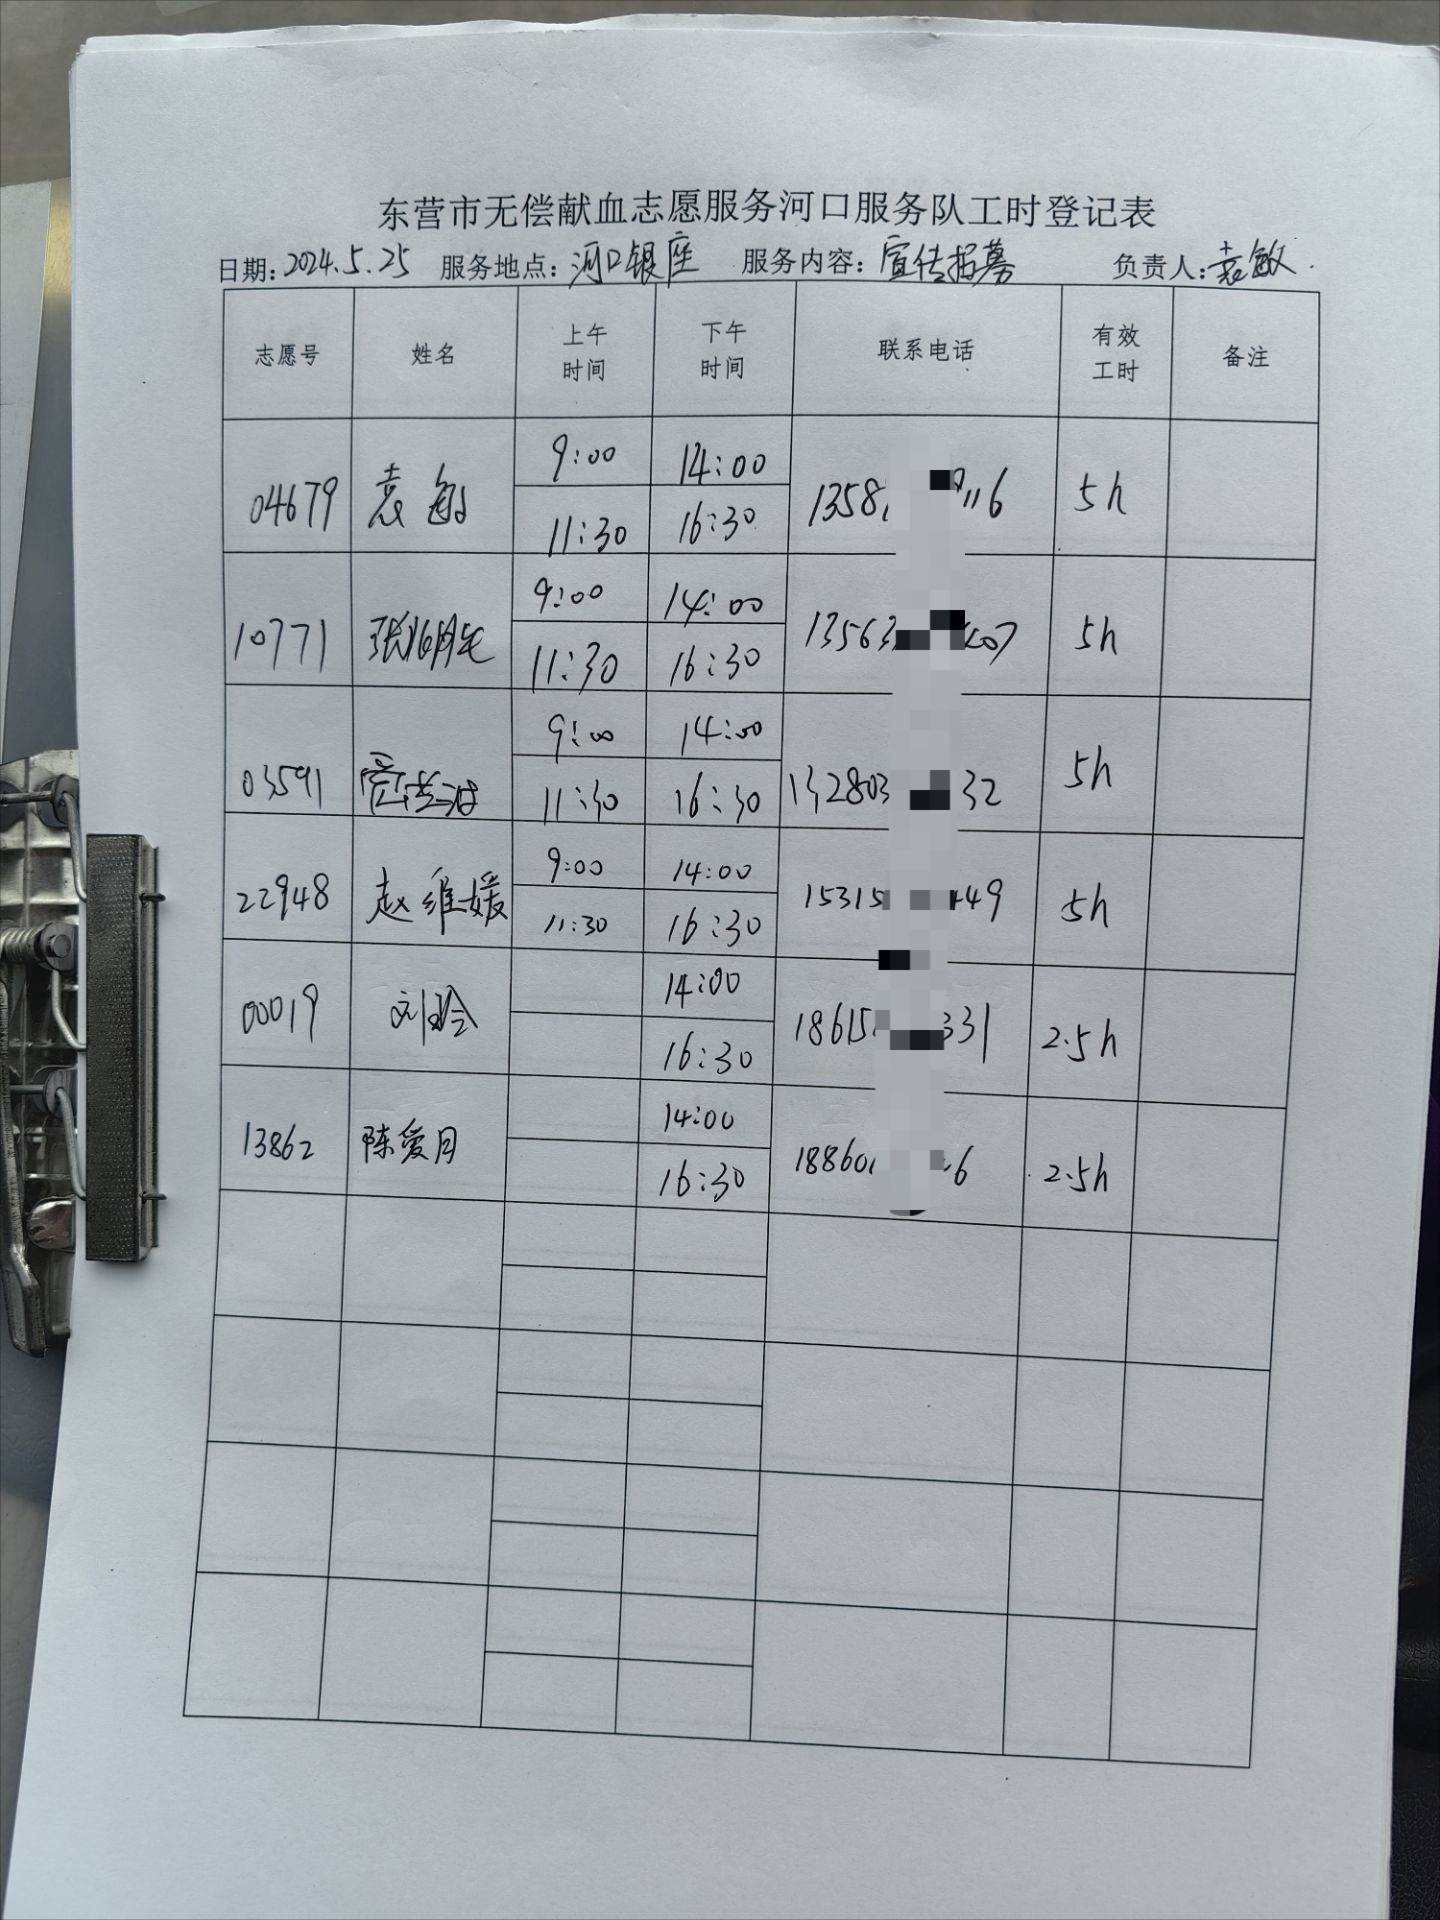 东营市无偿献血志愿服务河口服务队工时登记表
日期: 2024.5.25 服务地点: 河口银座 服务内容: 宣传招募 负责人: 袁敏
志愿号 姓名 上午时间 下午时间 联系电话 有效工时 备注
04679 袁敏 9:00 14:00 1358 116 5h
11:30 16:30
10771 9:00 14:00 13563 07 5h
11:30 16:30
03591 9:00 14:00 132803 32 5h
11:30 16:30
22948 赵维媛 9:00 14:00 15315 49 5h
11:30 16:30
00019 刘玲 14:00 18615 331 2.5h
16:30
13862 陈爱月 14:00 18860 6 2.5h
16:30